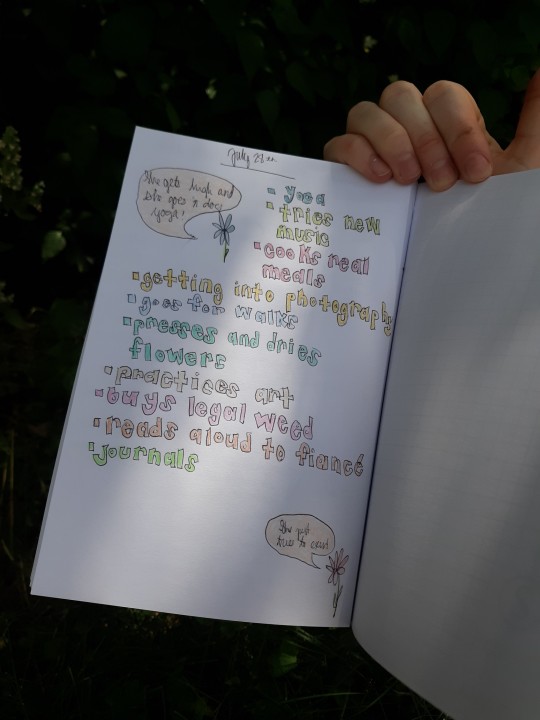 July 28th
She gets high and
she goes 'n does
yoga!
▪ yoga
▪ tries new
music
▪ cooks real
meals
▪ getting into photography
▪ goes for walks
▪ presses and dries
flowers
▪ practices art
▪ buys legal weed
▪ reads aloud to fiancé
▪ journals
She just
tries to exist